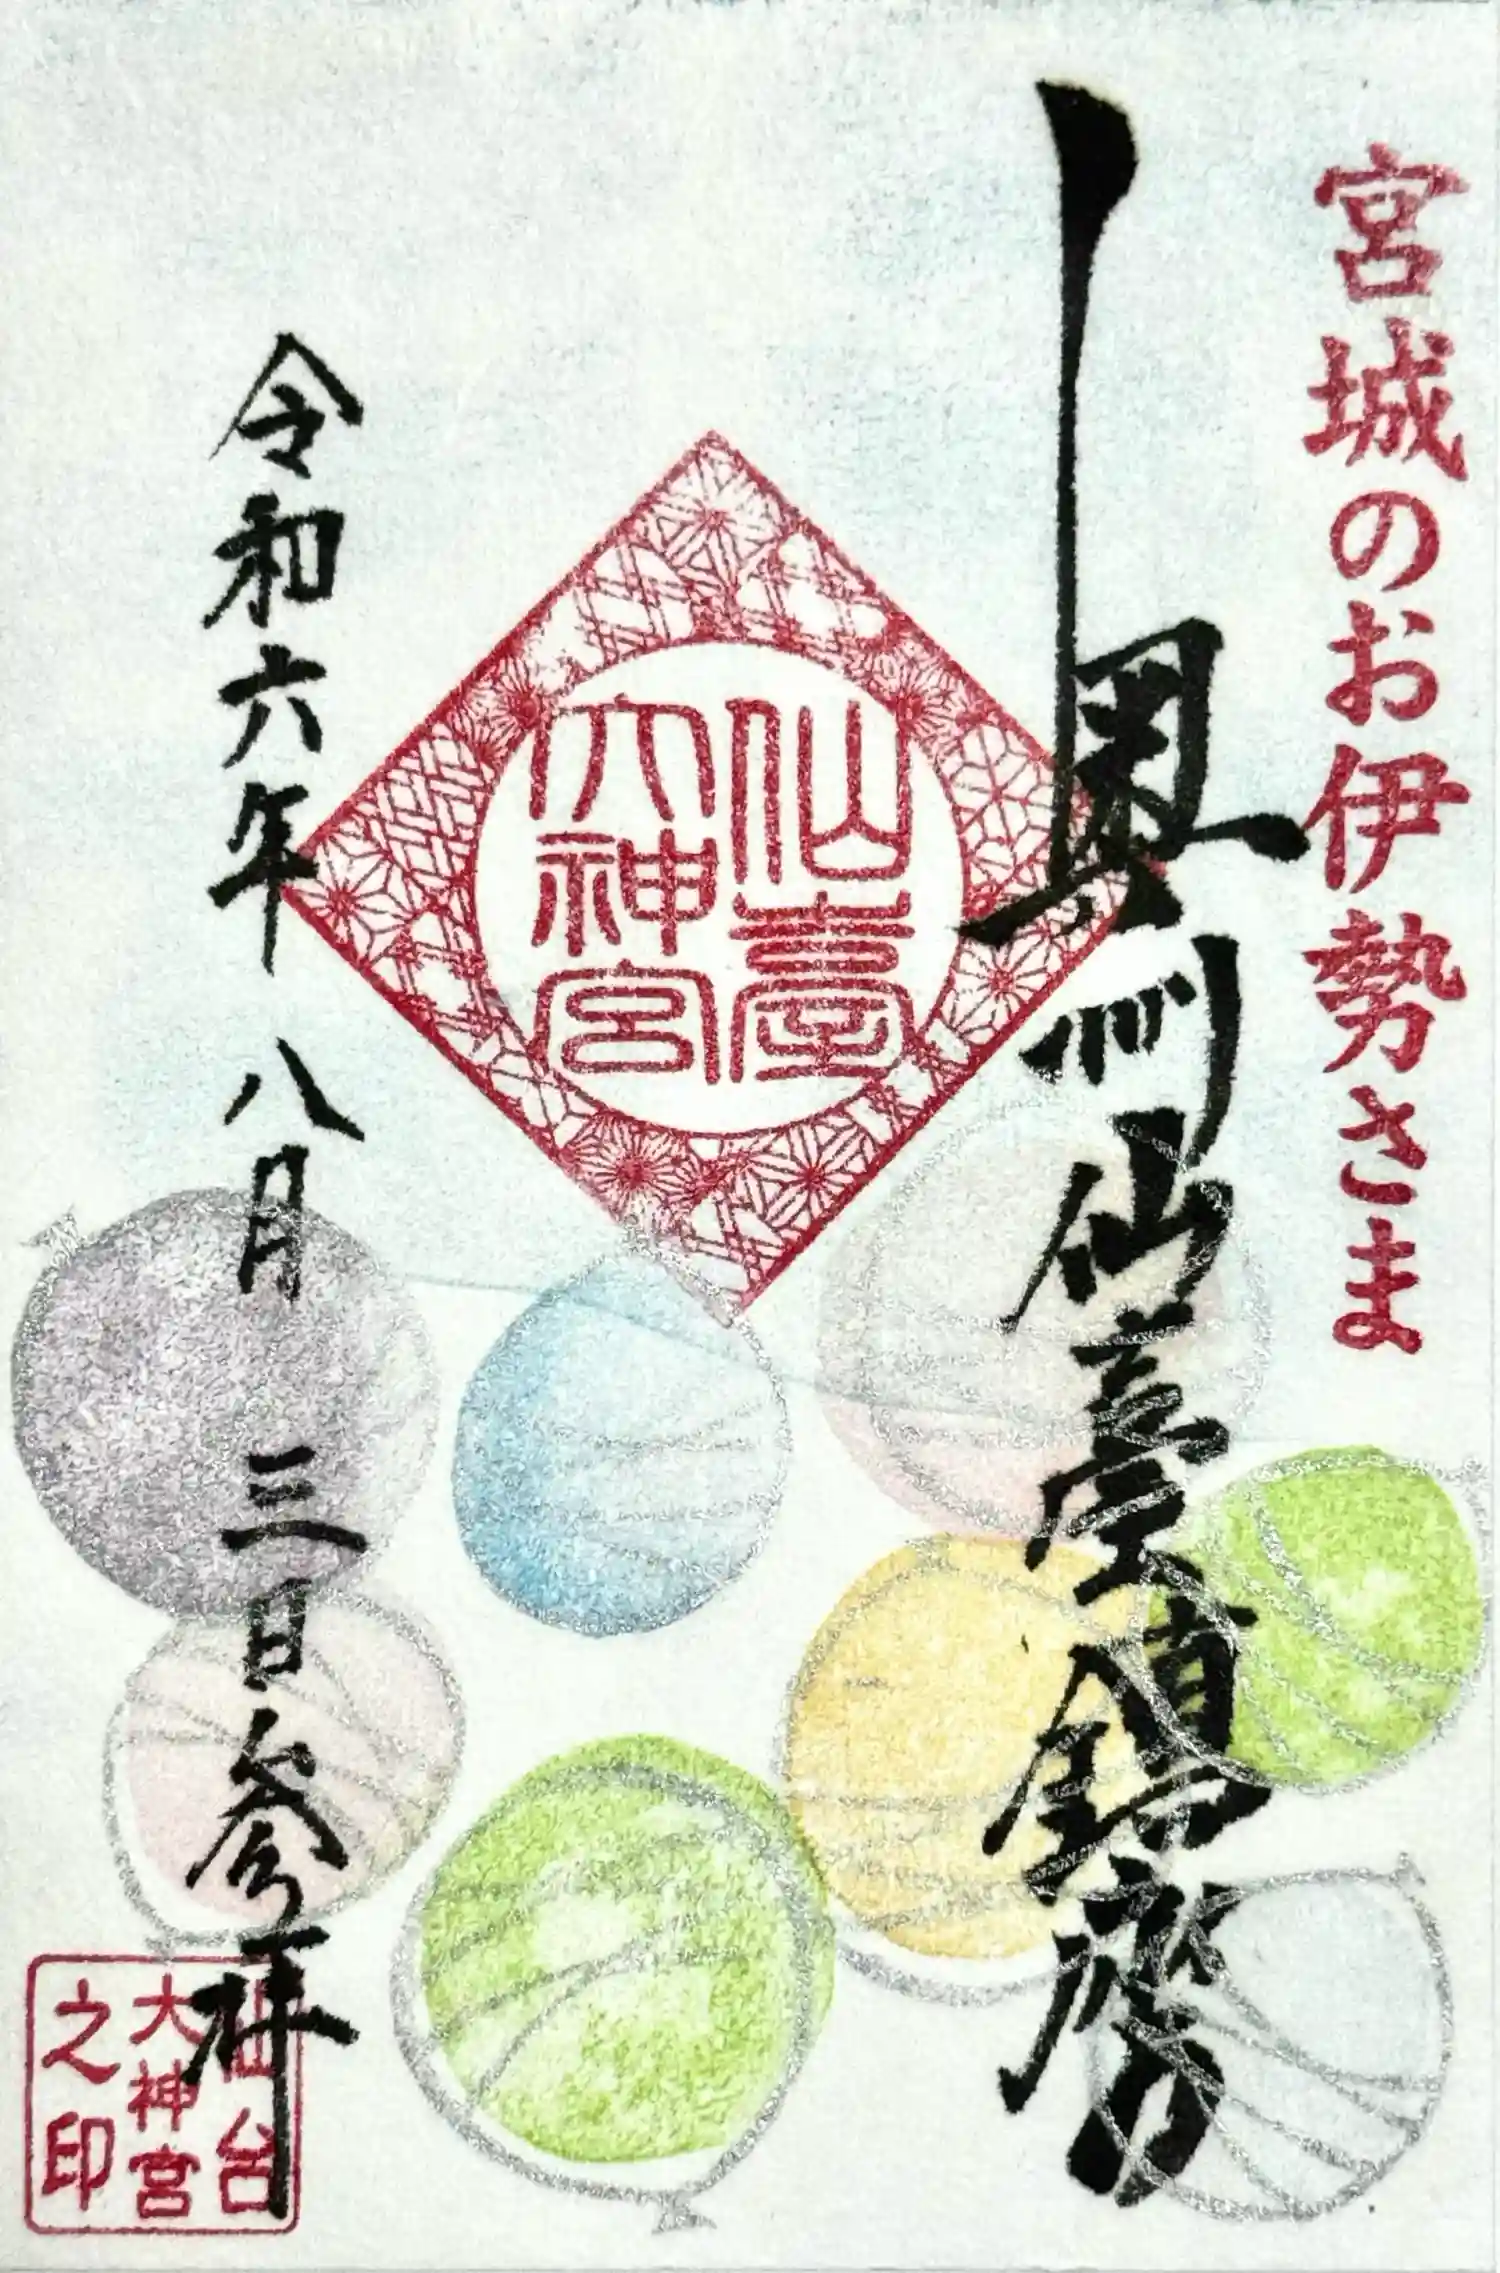 宮城のお伊勢さま
奥州仙臺鎮麿
仙臺
大神宮
令和六年 八月 三日参拝
仙台
大神宮
之印